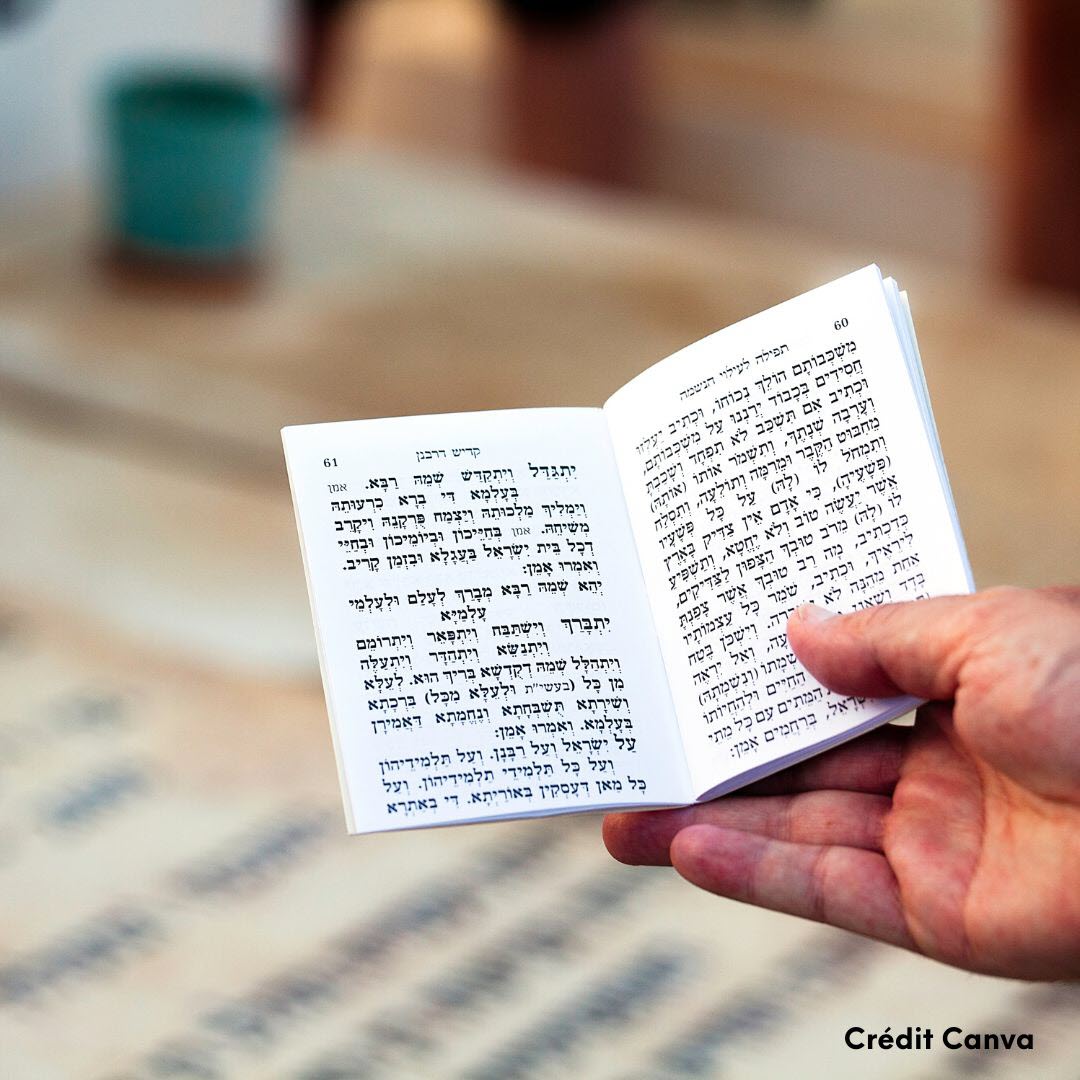 60
תפילה לעילוי הנשמה
מִשְׁכְּבוֹתָם הוֹלֵךְ נְכוֹחוֹ, וּכְתִיב יַעְלְזוּ
חֲסִידִים בְּכָבוֹד יְרַנְּנוּ עַל מִשְׁכְּבוֹתָם,
וּכְתִיב אִם תִּשְׁכַּב לֹא תִפְחָד וְשָׁכַבְתָּ
וְעָרְבָה שְׁנָתֶךָ, וְתִשְׁמֹר אוֹתוֹ (אוֹתָהּ)
מֵחִבּוּט הַקֶּבֶר וּמֵרִמָּה וְתוֹלֵעָה, וְתִסְלַח
וְתִמְחַל לוֹ (לָהּ) עַל כָּל פְּשָׁעָיו
(פְּשָׁעֶיהָ), כִּי אָדָם אֵין צַדִּיק בָּאָרֶץ
אֲשֶׁר יַעֲשֶׂה טוֹב וְלֹא יֶחֱטָא, וְתַשְׁפִּיעַ
לוֹ (לָהּ) מֵרֹב טוּבְךָ הַצָּפוּן לַצַּדִּיקִים,
כְּדִכְתִיב, מָה רַב טוּבְךָ אֲשֶׁר צָפַנְתָּ
לִּירֵאֶיךָ, וּכְתִיב, שֹׁמֵר כָּל עַצְמוֹתָיו
אַחַת מֵהֵנָּה לֹא נִשְׁבָּרָה. וְיִשְׁכֹּן בֶּטַח
בָּדָד וְשַׁאֲנָן וְאַל יִרְאֶה
נִשְׁמָתוֹ (וְנִשְׁמָתָהּ)
הַחַיִּים וּלְהַחֲיוֹתוֹ
הַמֵּתִים עִם כָּל מֵתֵי
יִשְׂרָאֵל, בְּרַחֲמִים אָמֵן:
61
קדיש דרבנן
יִתְגַּדַּל וְיִתְקַדַּשׁ שְׁמֵהּ רַבָּא. אמן
בְּעָלְמָא דִּי בְרָא כִרְעוּתֵהּ
וְיַמְלִיךְ מַלְכוּתֵהּ וְיַצְמַח פֻּרְקָנֵהּ וִיקָרֵב
מְשִׁיחֵהּ. אמן בְּחַיֵּיכוֹן וּבְיוֹמֵיכוֹן וּבְחַיֵּי
דְכָל בֵּית יִשְׂרָאֵל בַּעֲגָלָא וּבִזְמַן קָרִיב.
וְאִמְרוּ אָמֵן:
יְהֵא שְׁמֵהּ רַבָּא מְבָרַךְ לְעָלַם וּלְעָלְמֵי
עָלְמַיָּא
יִתְבָּרַךְ וְיִשְׁתַּבַּח וְיִתְפָּאַר וְיִתְרוֹמַם
וְיִתְנַשֵּׂא וְיִתְהַדָּר וְיִתְעַלֶּה
וְיִתְהַלָּל שְׁמֵהּ דְּקֻדְשָׁא בְּרִיךְ הוּא. לְעֵלָּא
מִן כָּל (בעשי״ת וּלְעֵלָּא מִכָּל) בִּרְכָתָא
וְשִׁירָתָא תֻּשְׁבְּחָתָא וְנֶחֱמָתָא דַּאֲמִירָן
בְּעָלְמָא. וְאִמְרוּ אָמֵן:
עַל יִשְׂרָאֵל וְעַל רַבָּנָן. וְעַל תַּלְמִידֵיהוֹן
וְעַל כָּל תַּלְמִידֵי תַלְמִידֵיהוֹן. וְעַל
כָּל מָאן דְּעָסְקִין בְּאוֹרַיְתָא. דִּי בְאַתְרָא
Crédit Canva